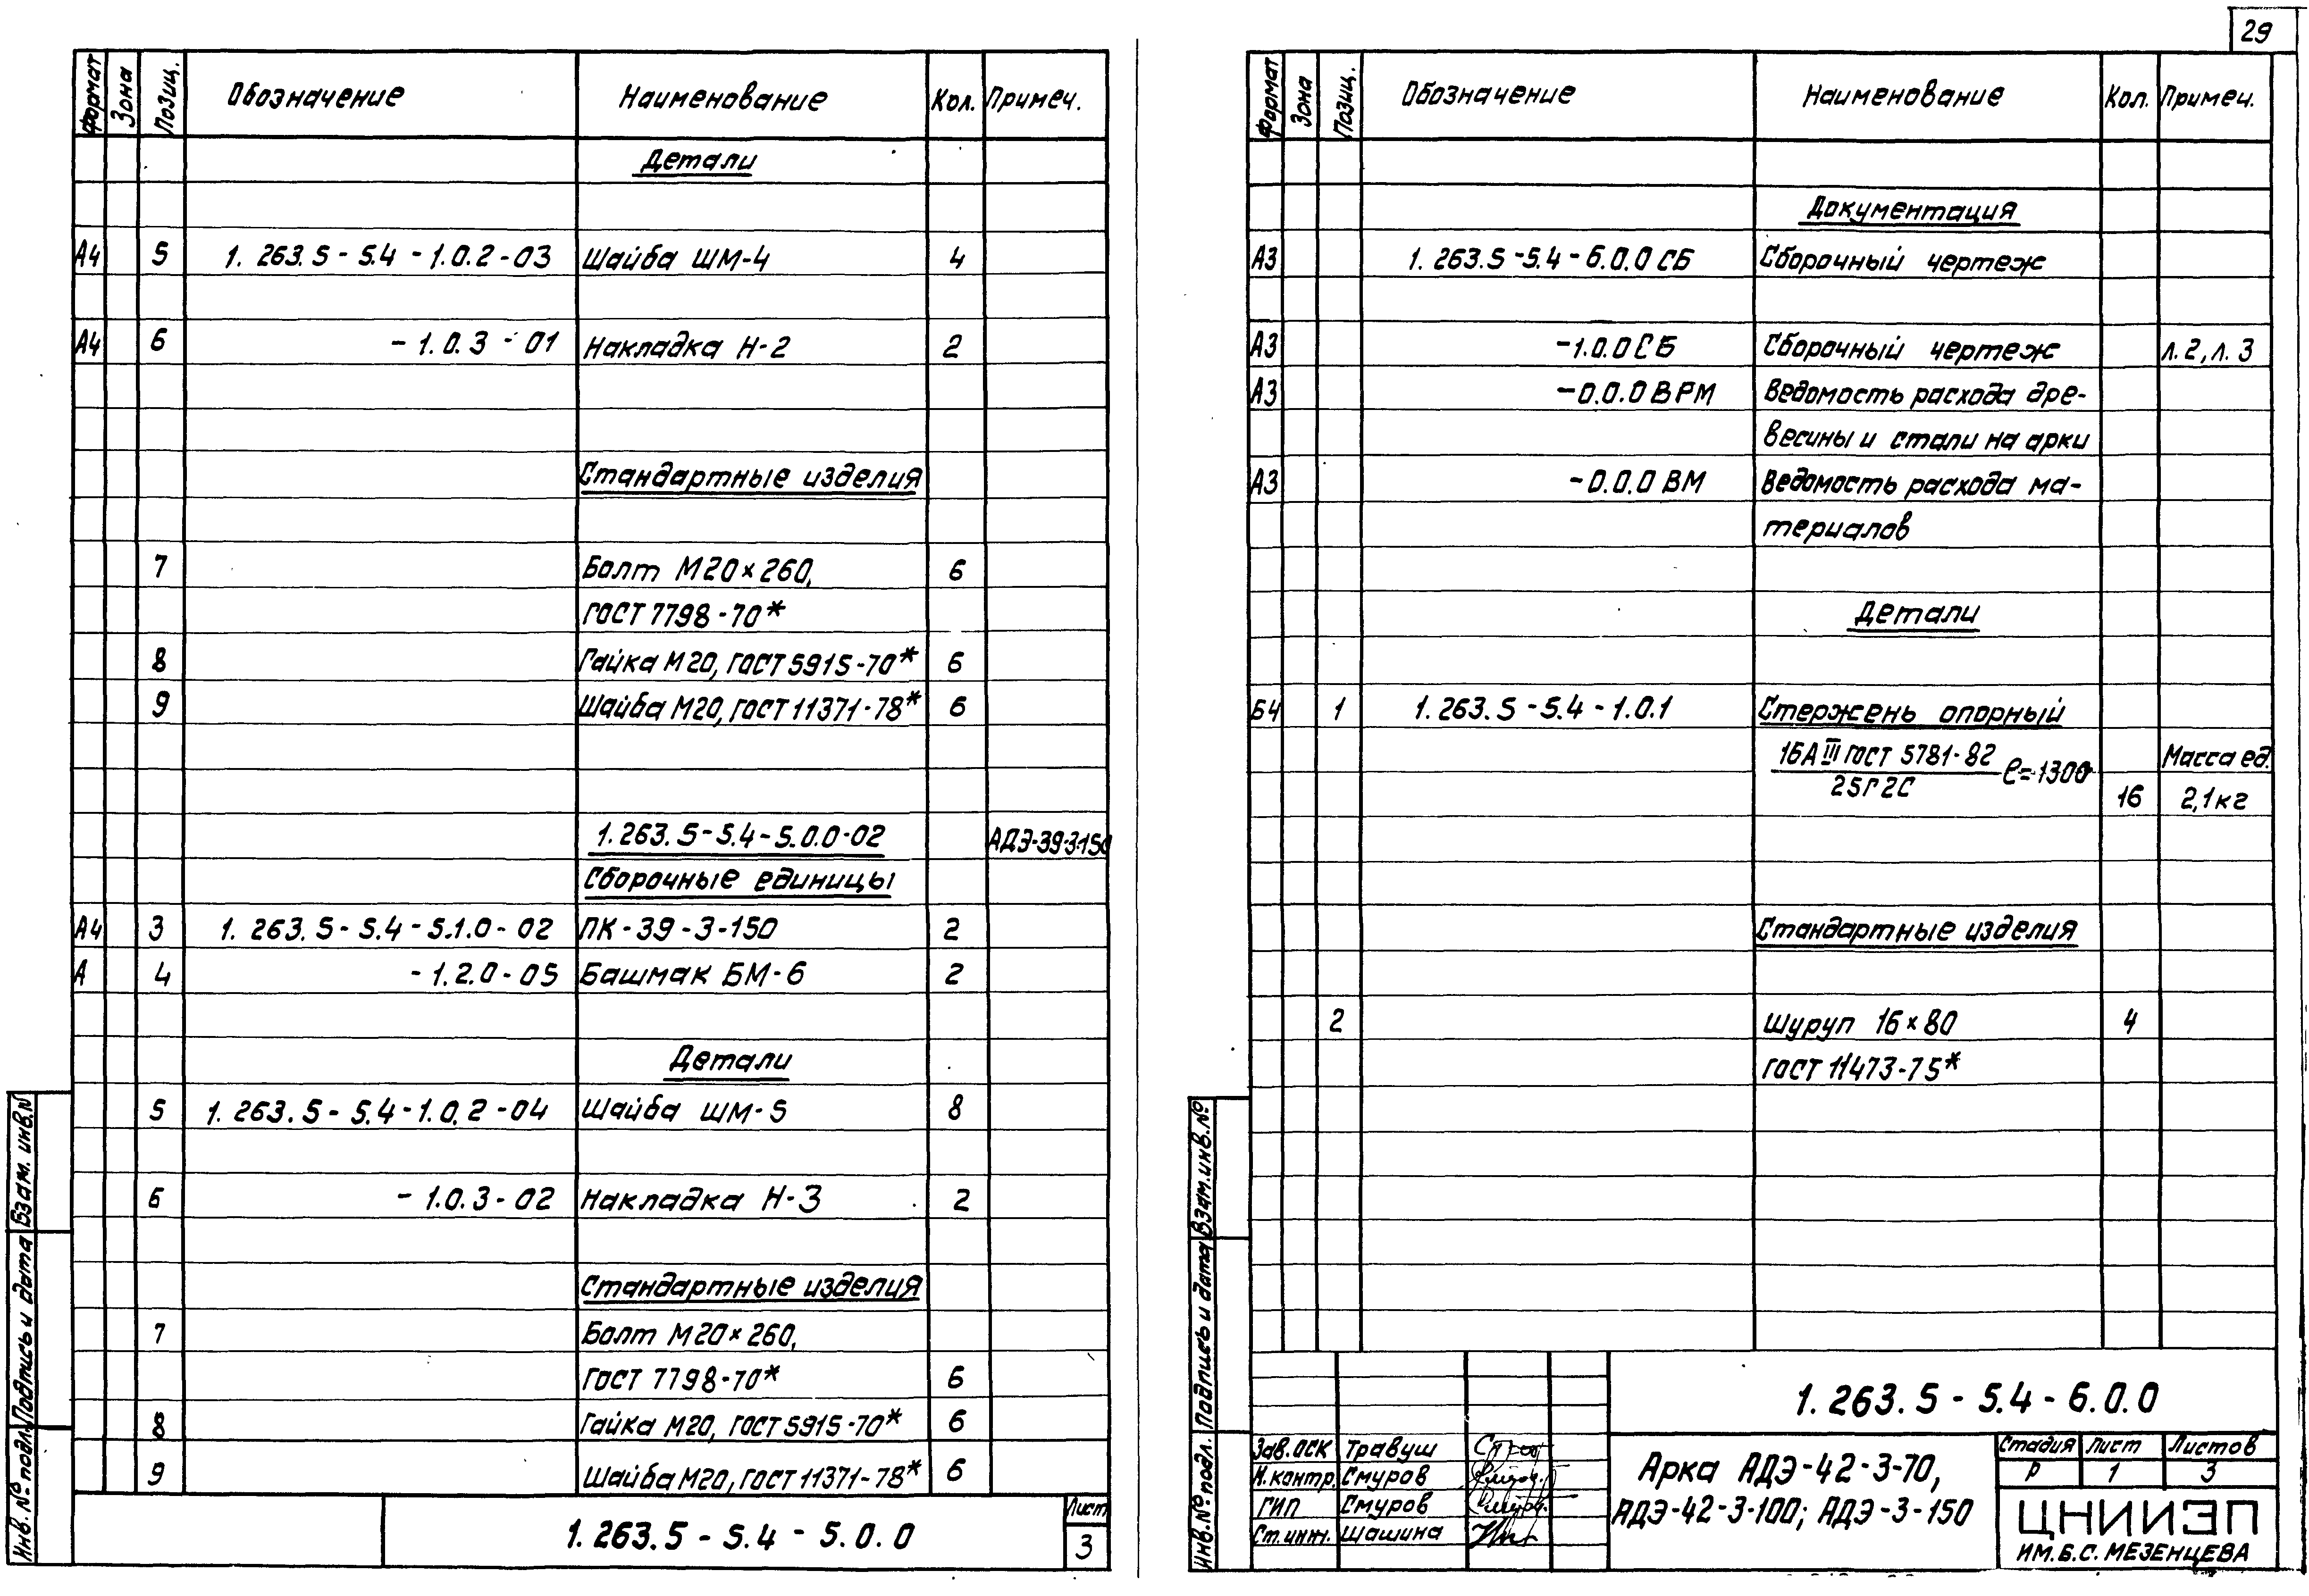 29
Формат Зона Позиц. Обозначение Наименование Кол. Примеч.
Детали
А4 5 1.263.5-5.4-1.0.2-03 Шайба ШМ-4 4
А4 6 -1.0.3-01 Накладка Н-2 2
Стандартные изделия
7 Болт М20×260, 6
ГОСТ 7798-70*
8 Гайка М20, ГОСТ 5915-70* 6
9 Шайба М20, ГОСТ 11371-78* 6
1.263.5-5.4-5.0.0-02 АДЭ-39-3-150
Сборочные единицы
А4 3 1.263.5-5.4-5.1.0-02 ПК-39-3-150 2
А 4 -1.2.0-05 Башмак БМ-6 2
Детали
5 1.263.5-5.4-1.0.2-04 Шайба ШМ-5 8
6 -1.0.3-02 Накладка Н-3 2
Стандартные изделия
7 Болт М20×260,
ГОСТ 7798-70* 6
8 Гайка М20, ГОСТ 5915-70* 6
9 Шайба М20, ГОСТ 11371-78* 6
1.263.5-5.4-5.0.0
Лист
3
Инв. № подл. Подпись и дата Взам. инв. №
Формат Зона Позиц. Обозначение Наименование Кол. Примеч.
Документация
А3 1.263.5-5.4-6.0.0 СБ Сборочный чертеж
А3 -1.0.0 СБ Сборочный чертеж л.2, л.3
А3 -0.0.0 ВРМ Ведомость расхода дре-
весины и стали на арки
А3 -0.0.0 ВМ Ведомость расхода ма-
териалов
Детали
Б4 1 1.263.5-5.4-1.0.1 Стержень опорный
16А III ГОСТ 5781-82 ℓ=1300 Масса ед.
25Г2С 16 2,1 кг
Стандартные изделия
2 Шуруп 16×80 4
ГОСТ 11473-75*
Инв. № подл. Подпись и дата Взам. инв. №
1.263.5-5.4-6.0.0
Зав. ОСК Травуш
Н. контр. Смуров
ГИП Смуров
Ст. инж. Шашина
Арка АДЭ-42-3-70,
АДЭ-42-3-100; АДЭ-3-150
Стадия Лист Листов
Р 1 3
ЦНИИЭП
ИМ. Б.С. МЕЗЕНЦЕВА